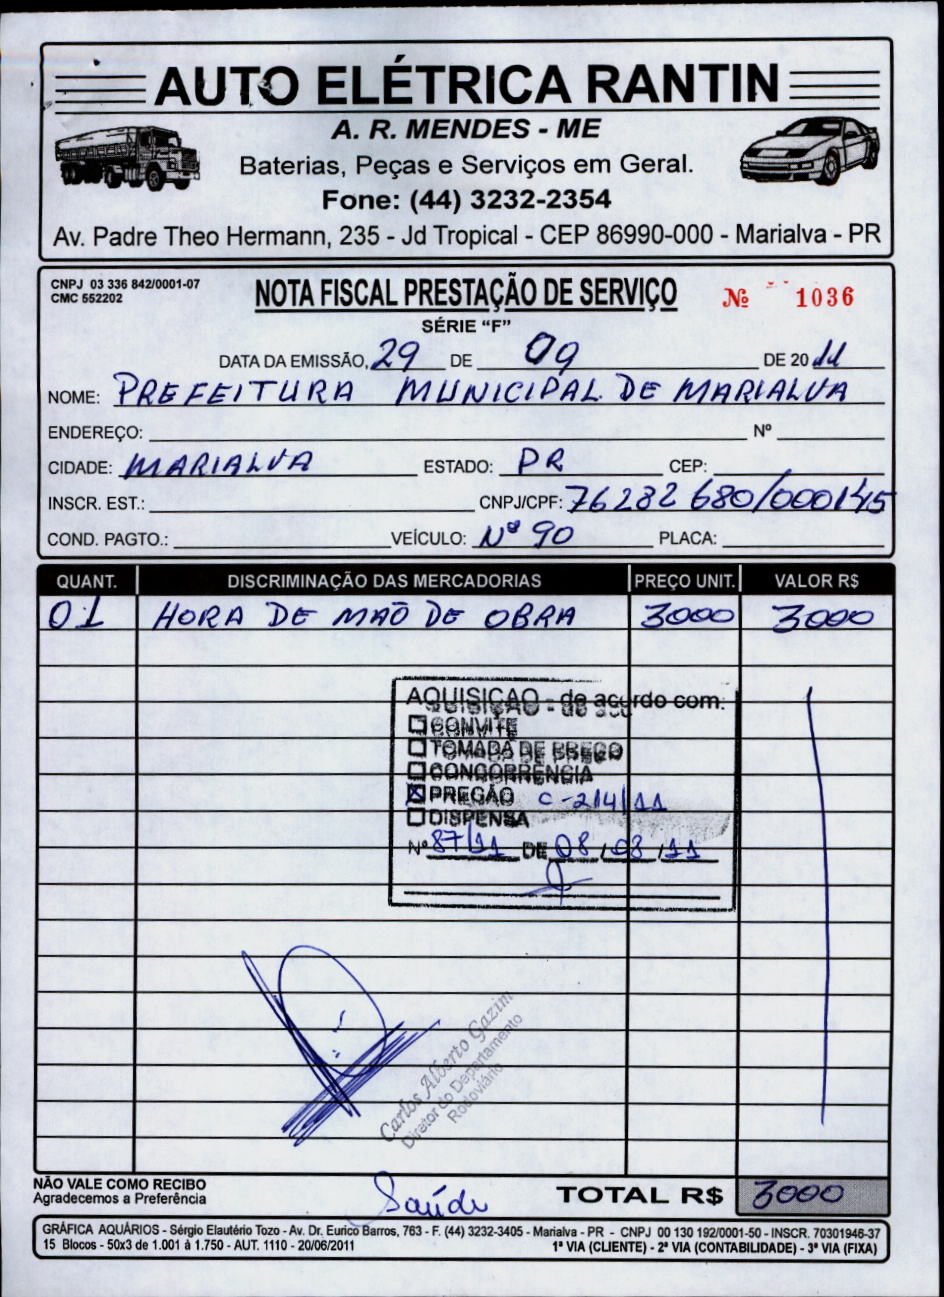 AUTO ELÉTRICA RANTIN
A. R. MENDES - ME
Baterias, Peças e Serviços em Geral.
Fone: (44) 3232-2354
Av. Padre Theo Hermann, 235 - Jd Tropical - CEP 86990-000 - Marialva - PR
CNPJ 03 336 842/0001-07
CMC 552202
NOTA FISCAL PRESTAÇÃO DE SERVIÇO
Nº 1036
SÉRIE “F”
DATA DA EMISSÃO, 29 DE 09 DE 2011
NOME: PREFEITURA MUNICIPAL DE MARIALVA
ENDEREÇO: Nº
CIDADE: MARIALVA ESTADO: PR CEP:
INSCR. EST.: CNPJ/CPF: 76282680/0001-45
COND. PAGTO.: VEÍCULO: Nº 90 PLACA:
QUANT. DISCRIMINAÇÃO DAS MERCADORIAS PREÇO UNIT. VALOR R$
01 HORA DE MÃO DE OBRA 3000 3000
AQUISIÇAO - de acordo com:
CONVITE
TOMADA DE PREÇO
CONCORRENCIA
PREGÃO C-214/11
DISPENSA
Nº 87/11 DE 08/08/11
Carlos Alberto Gazim
Diretor do Departamento
Rodoviário
NÃO VALE COMO RECIBO
Agradecemos a Preferência
Saúde
TOTAL R$ 3000
GRÁFICA AQUÁRIOS - Sérgio Elautério Tozo - Av. Dr. Eurico Barros, 763 - F. (44) 3232-3405 - Marialva - PR - CNPJ 00 130 192/0001-50 - INSCR. 70301946-37
15 Blocos - 50x3 de 1.001 à 1.750 - AUT. 1110 - 20/06/2011 1ª VIA (CLIENTE) - 2ª VIA (CONTABILIDADE) - 3ª VIA (FIXA)